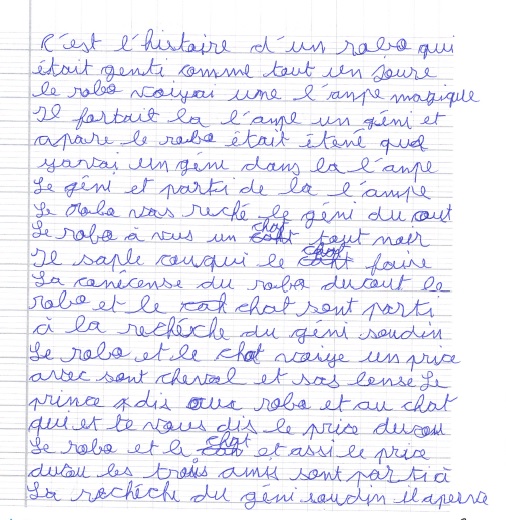 C'est l'histaire d'un robo qui
était genti comme tout un joure
le robo voiyai une l'anpe magique
Il fortait la l'anpe un géni et
apare le robo était éténé que
yavai un géni dans la l'anpe
Le géni et parti de la l'ampe
Le robo vas reché le géni du cout
Le robo à vus un chat tout noir
Il saple couqui le chat faire
La conécense du robo ducout le
robo et le chat sont parti
à la rechéche du géni soudin
Le robo et le chat voiye un price
avec sont cheval et sas lense Le
prince dis aux robo et au chat
qui et te vous dis le price ducou
Le robo et le chat et assi le price
ducou les trois amis sont parti à
La rochéche du géni soudin il aperse